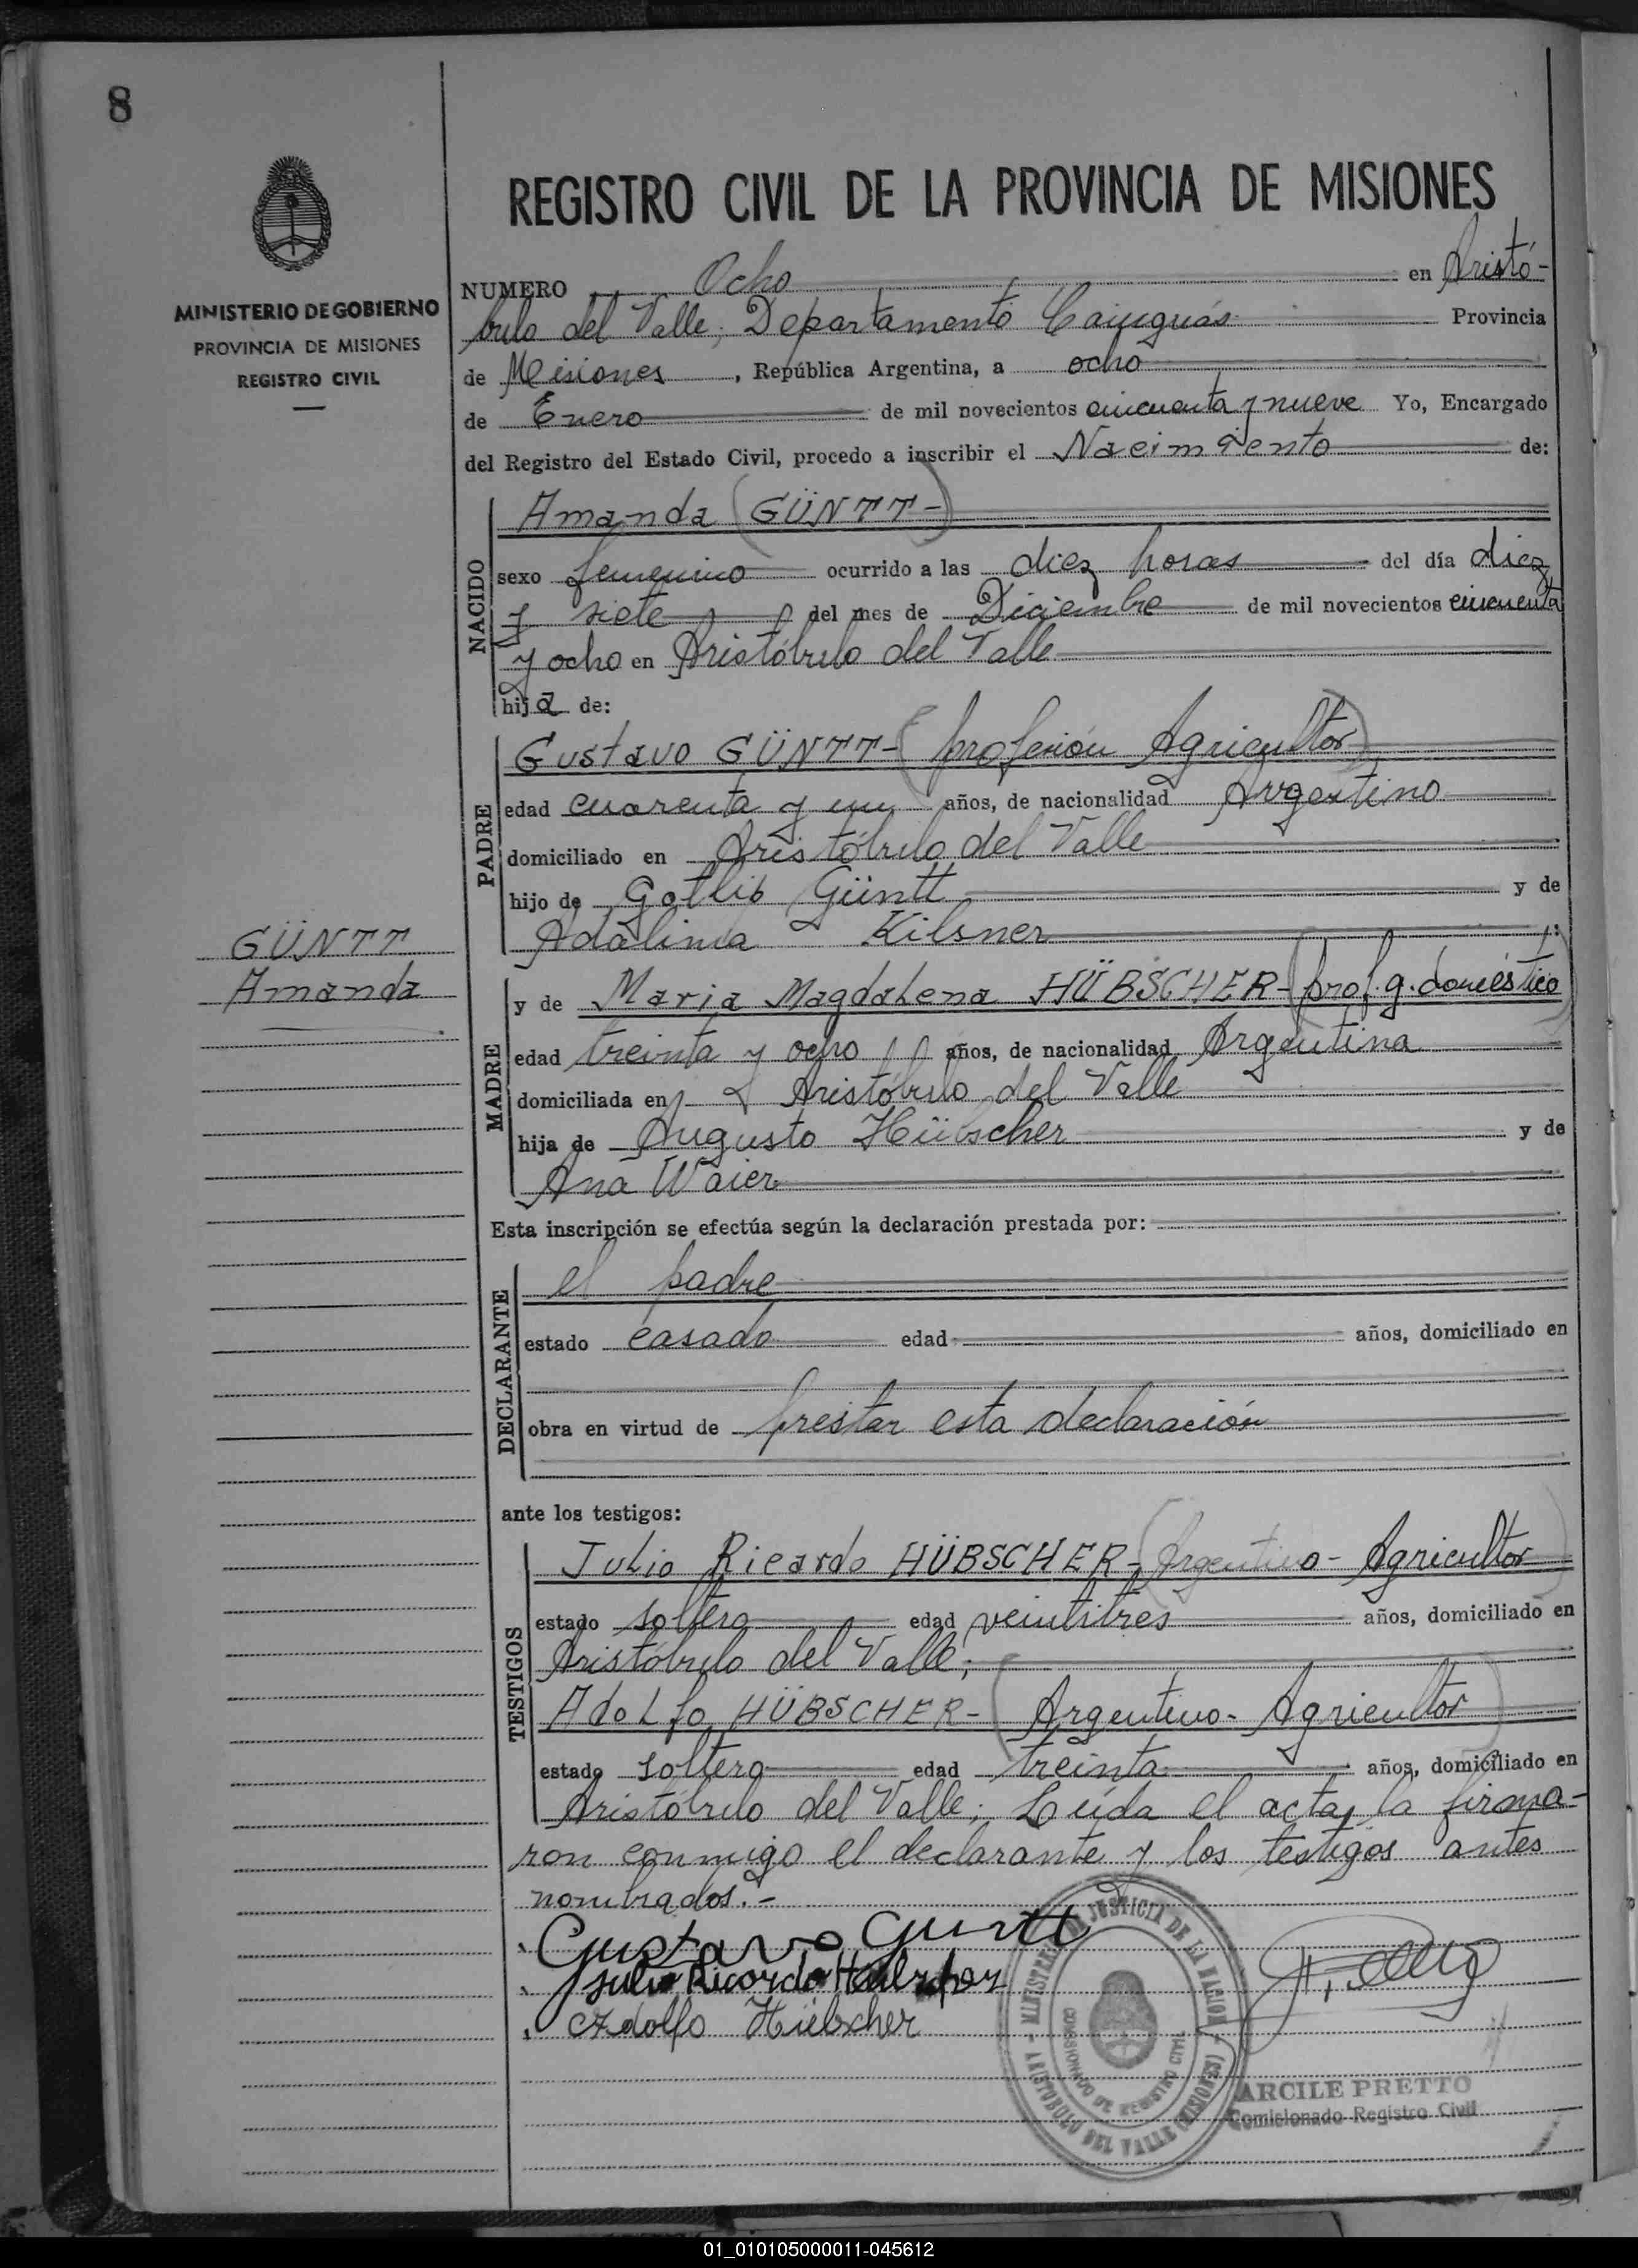 8
MINISTERIO DE GOBIERNO
PROVINCIA DE MISIONES
REGISTRO CIVIL
GÜNTT
Amanda
REGISTRO CIVIL DE LA PROVINCIA DE MISIONES
NUMERO Ocho en Aristó-
bulo del Valle, Departamento Cainguás Provincia
de Misiones, República Argentina, a ocho
de Enero de mil novecientos cincuenta y nueve Yo, Encargado
del Registro del Estado Civil, procedo a inscribir el Nacimiento de:
NACIDO
Amanda (GÜNTT-)
sexo femenino ocurrido a las diez horas del día diez
y siete del mes de Diciembre de mil novecientos cincuenta
y ocho en Aristóbulo del Valle
hija de:
PADRE
Gustavo GÜNTT- (profesión Agricultor)
edad cuarenta y un años, de nacionalidad Argentino
domiciliado en Aristóbulo del Valle
hijo de Gotlib Güntt y de
Adalinia Kilsner
MADRE
y de Maria Magdalena HÜBSCHER- (prof. g. doméstico)
edad treinta y ocho años, de nacionalidad Argentina
domiciliada en Aristóbulo del Valle
hija de Augusto Hübscher y de
Ana Waier
Esta inscripción se efectúa según la declaración prestada por:
DECLARANTE
el padre
estado casado edad años, domiciliado en
obra en virtud de prestar esta declaración
ante los testigos:
TESTIGOS
Julio Ricardo HÜBSCHER- (Argentino- Agricultor)
estado soltero edad veintitres años, domiciliado en
Aristóbulo del Valle;
Adolfo HÜBSCHER- (Argentino- Agricultor)
estado soltero edad treinta años, domiciliado en
Aristóbulo del Valle; Leída el acta, la firma-
ron conmigo el declarante y los testigos antes
nombrados.-
Gustavo Guntt
Julio Ricardo Hübscher
Adolfo Hübscher
MINISTERIO DE JUSTICIA DE LA NACION
ARISTOBULO DEL VALLE (MISIONES)
COMISIONADO DE REGISTRO CIVIL
ARCILE PRETTO
Comisionado Registro Civil
01_010105000011-045612